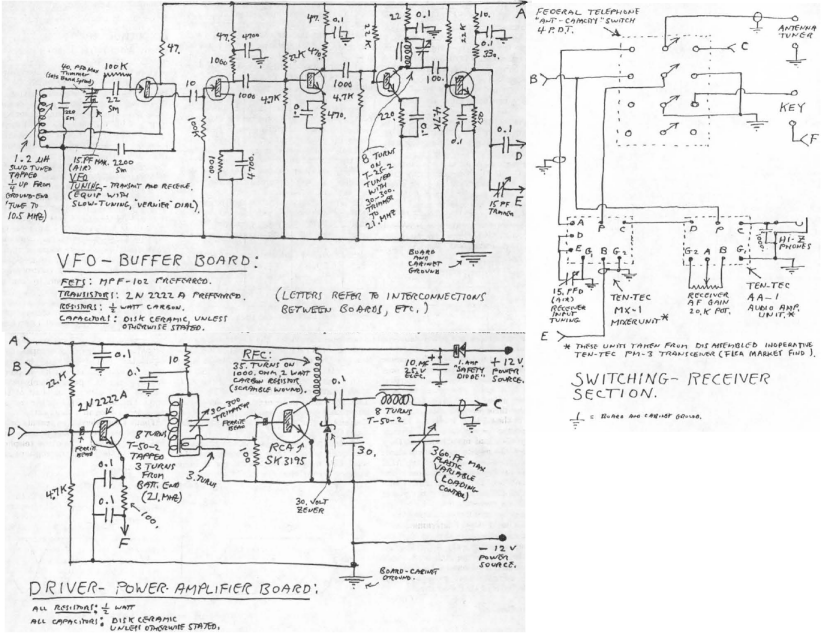 47.
47.
4700
1000
22K
47.
0.1
22.
K
22
0.1
22
K
10.
0.1
330.
A
40. PFD Max
Trimmer
100K
22
5M
10
1000
4.7K
1000
4.7K
100.
4.7K
220
5M
15. PF MAX.
(AIR)
2200
5M
100K
1000.
4700.
470.
220.
0.1
0.1
0.1
D
E
15 PF
TRIMMER
1.2 UH
SLUG TUNED
TAPPED
1/4 UP FROM
GROUND-END
TUNE TO
10.5 MHZ)
VFO
TUNING - TRANSMIT AND RECEIVE.
(EQUIP WITH
SLOW-TUNING, "VERNIER" DIAL).
8 TURNS
ON
T-25-2
TUNED
WITH
30-300.
TRIMMER
TO
21. MHZ
BOARD
AND
CABINET
GROUND
VFO - BUFFER BOARD:
FETS: MPF-102 PREFERRED.
TRANSISTORS: 2N2222A PREFERRED.
RESISTORS: 1/2 WATT CARBON.
CAPACITORS: DISK CERAMIC, UNLESS
OTHERWISE STATED.
(LETTERS REFER TO INTERCONNECTIONS
BETWEEN BOARDS, ETC.)
A
B
D
22K
4.7K
0.1
0.1
10
2N2222A
FERRITE
BEAD
8 TURNS
T-50-2
TAPPED
3 TURNS
FROM
BATT. END
(21. MHZ)
0.1
0.1
100.
F
30-300
TRIMMER
3. TURN
FERRITE
BEAD
100
RFC:
35. TURNS ON
1000. OHM 2 WATT
CARBON RESISTOR
(SCRAMBLE WOUND).
RCA
SK3195
30. VOLT
ZENER
0.1
30.
10. MF
25 V
ELEC.
1. AMP
"SAFETY
DIODE"
+ 12 V
POWER
SOURCE.
8 TURNS
T-50-2
C
360. PF MAX
PLASTIC
VARIABLE
(LOADING
CONTROL)
- 12 V
POWER
SOURCE.
BOARD-CABINET
GROUND.
DRIVER - POWER - AMPLIFIER BOARD:
ALL RESISTORS: 1/2 WATT
ALL CAPACITORS: DISK CERAMIC
UNLESS OTHERWISE STATED.
FEDERAL TELEPHONE
"ANT-CAPACITY" SWITCH
4 P.D.T.
ANTENNA
TUNER
C
B
KEY
F
A P C
D
E G B G2
D P C
G2 A B G
1000
HI-Z
PHONES
15. PFD
(AIR)
RECEIVER
INPUT
TUNING
TEN-TEC
MX-1
MIXER UNIT *
RECEIVER
AF GAIN
20.K POT.
TEN-TEC
AA-1
AUDIO AMP.
UNIT. *
E
* THESE UNITS TAKEN FROM DISASSEMBLED INOPERATIVE
TEN-TEC PM-3 TRANSCEIVER (FLEA MARKET FIND).
SWITCHING - RECEIVER
SECTION.
= BOARD AND CABINET GROUND.